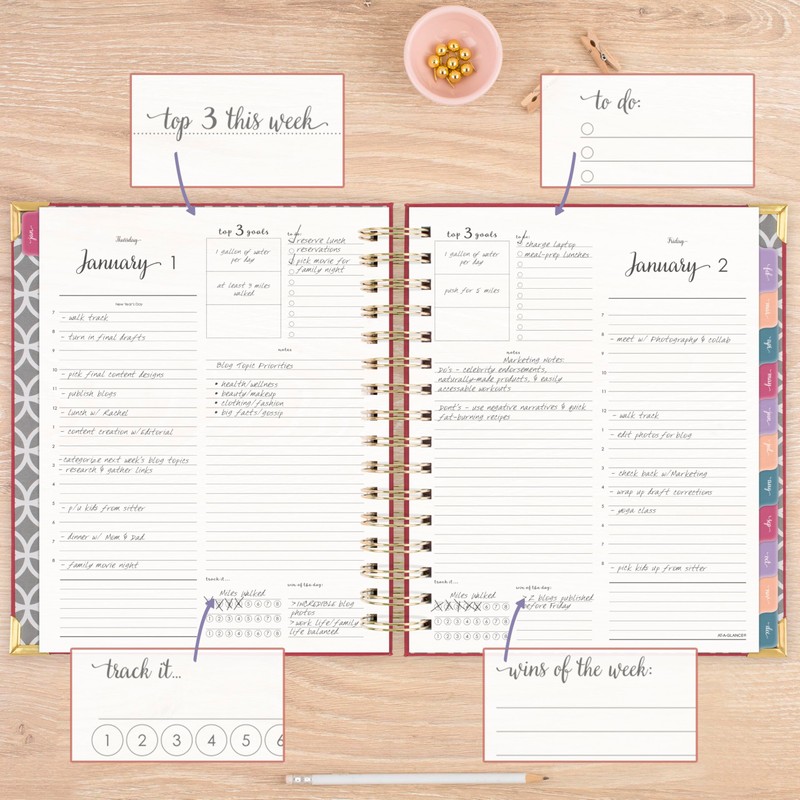 top 3 this week
to do:
Thursday
January 1
New Year's Day
7
- walk track
8
- turn in final drafts
9
10
- pick final content designs
11
- publish blogs
12
- lunch w/ Rachel
1
- content creation w/Editorial
2
- categorize next week's blog topics
3
- research & gather links
4
5
- p/u kids from sitter
6
7
- dinner w/ Mom & Dad
8
- family movie night
top 3 goals
1 gallon of water
per day
at least 3 miles
walked
to do
reserve lunch
reservations
pick movie for
family night
notes
Blog Topic Priorities
• health/wellness
• beauty/makeup
• clothing/fashion
• big facts/gossip
track it...
Miles Walked
1 2 3 4 5 6 7 8
1 2 3 4 5 6 7 8
win of the day:
> INCREDIBLE blog
photos
> work life/family
life balanced
top 3 goals
1 gallon of water
per day
push for 5 miles
to do
charge laptop
meal-prep lunches
notes
Marketing Notes:
Do's - celebrity endorsements,
naturally-made products, & easily
accessable workouts
Dont's - use negative narratives & quick
fat-burning recipes
track it...
Miles Walked
win of the day:
> 2 blogs published
before Friday
Friday
January 2
7
8
- meet w/ Photography & collab
9
10
11
12
- walk track
1
- edit photos for blog
2
3
- check back w/Marketing
4
- wrap up draft corrections
5
- yoga class
6
7
8
- pick kids up from sitter
AT-A-GLANCE®
track it...
1 2 3 4 5 6
wins of the week: